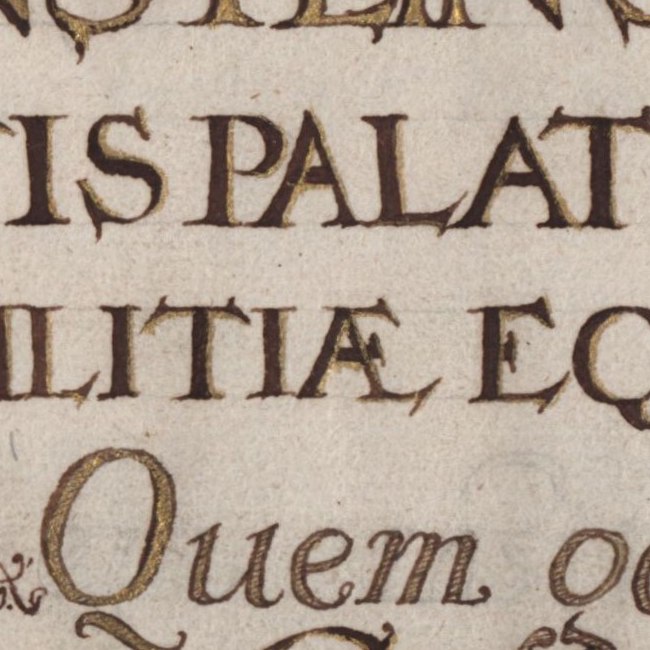 TIS PALAT
ILITIÆ EQ
Quem oc